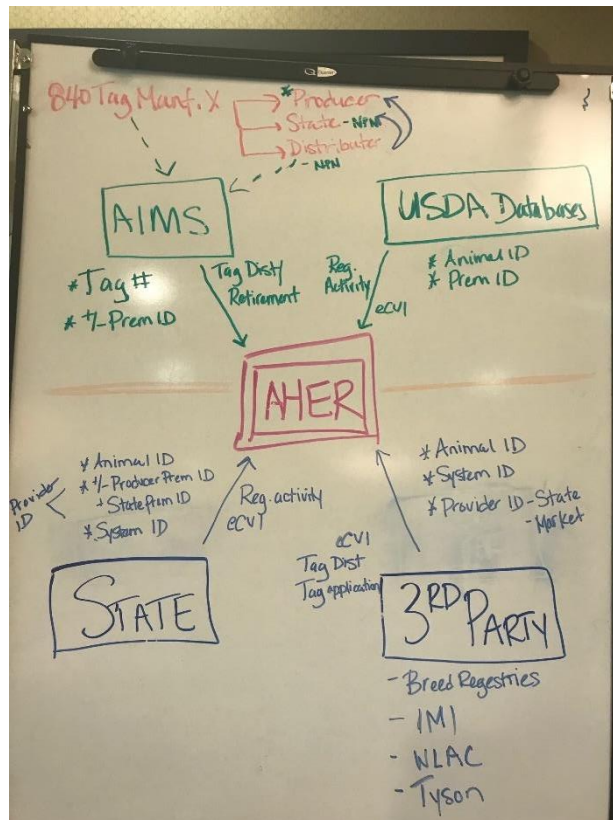 840 Tag Manf. X
* Producer
State - NPN
Distributer
- NPN
AIMS
USDA Databases
* Tag #
* +/- Prem ID
Tag Dist/
Retirement
Reg.
Activity
eCVI
* Animal ID
* Prem ID
AHER
Provider
ID
* Animal ID
* +/- Producer Prem ID
+ State Prem ID
* System ID
Reg. activity
eCVI
* Animal ID
* System ID
* Provider ID - State
- Market
eCVI
Tag Dist
Tag application
STATE
3RD PARTY
- Breed Regestries
- IMI
- WLAC
- Tyson